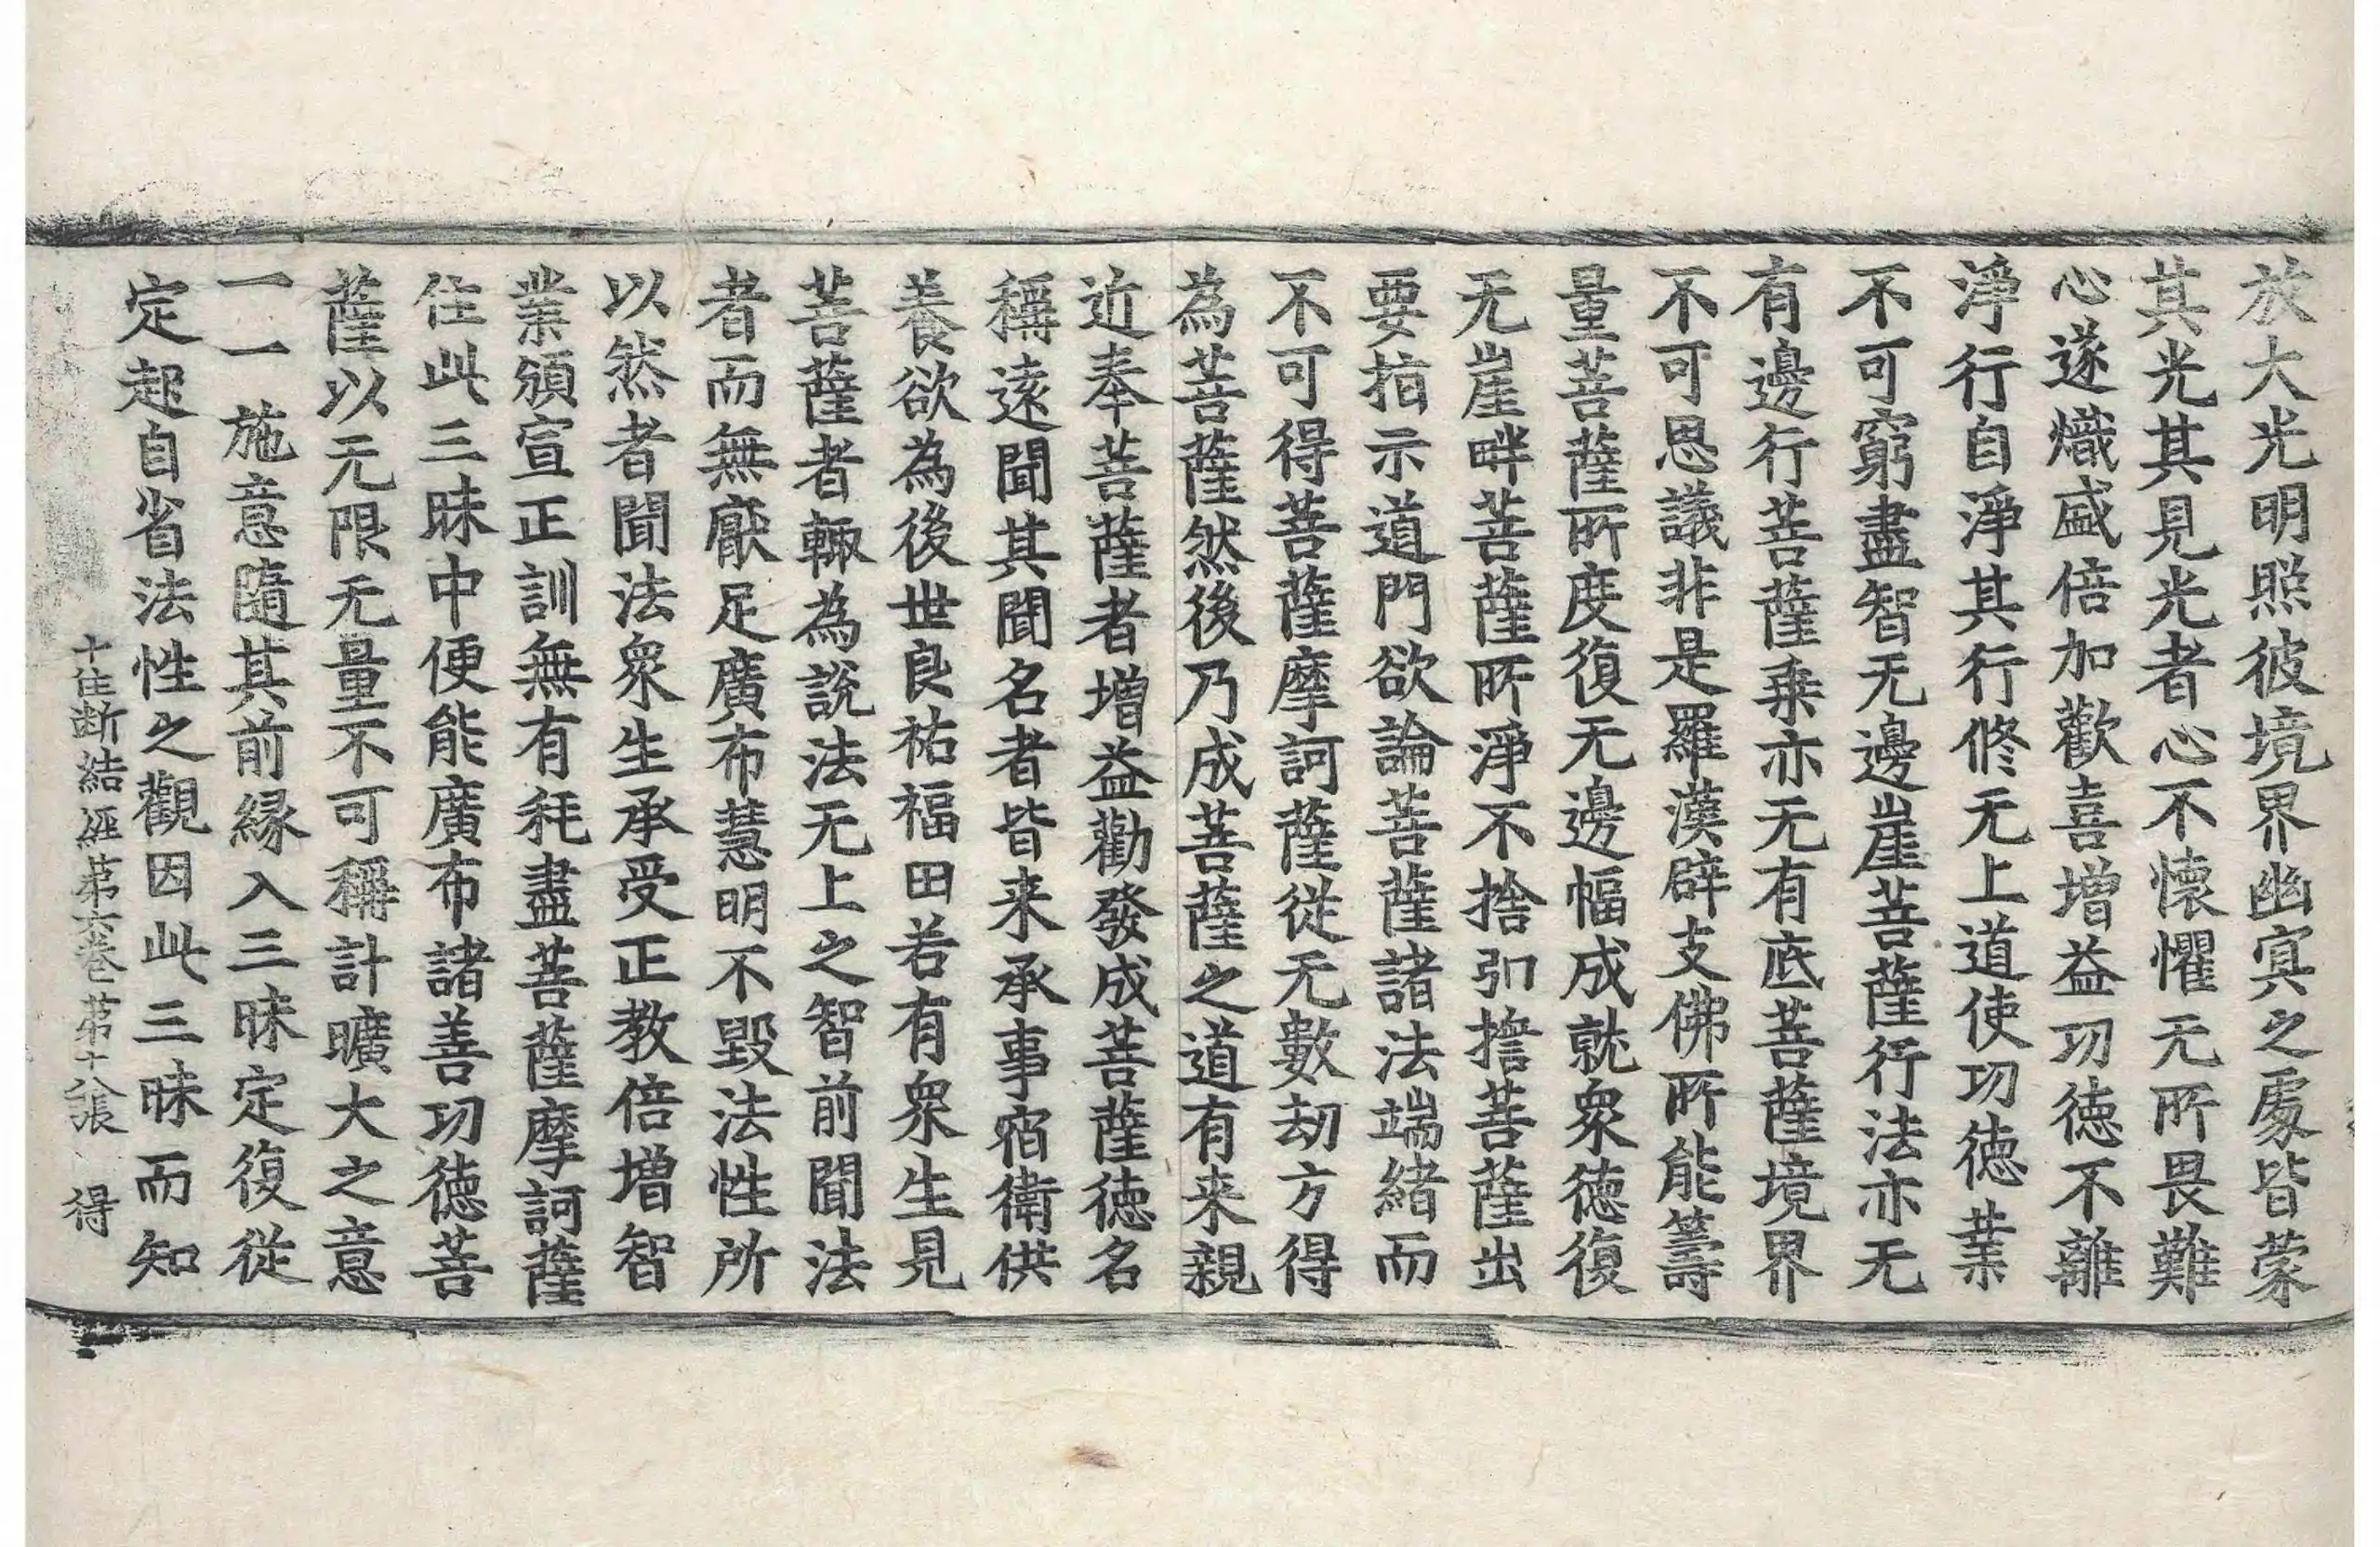 放大光明照彼境界幽冥之處皆蒙
其光其見光者心不懷懼无所畏難
心遂熾盛倍加歡喜增益功徳不離
淨行自淨其行修无上道使功徳業
不可窮盡智无邊崖菩薩行法亦无
有邊行菩薩乗亦无有底菩薩境界
不可思議非是羅漢辟支佛所能籌
量菩薩所度復无邊幅成就衆徳復
无崖畔菩薩所淨不捨弘擔菩薩出
要指示道門欲論菩薩諸法端緒而
不可得菩薩摩訶薩從无數劫方得
為菩薩然後乃成菩薩之道有来親
近奉菩薩者增益勸發成菩薩徳名
稱遠聞其聞名者皆来承事宿衛供
養欲為後世良祐福田若有衆生見
菩薩者輙為說法无上之智前聞法
者而無厭足廣布慧明不毀法性所
以然者聞法衆生承受正教倍增智
業頒宣正訓無有秏盡菩薩摩訶薩
住此三昧中便能廣布諸善功徳菩
薩以无限无量不可稱計曠大之意
一一施意隨其前縁入三昧定復從
定起自省法性之觀因此三昧而知
十住断結經第六卷第十八張 得